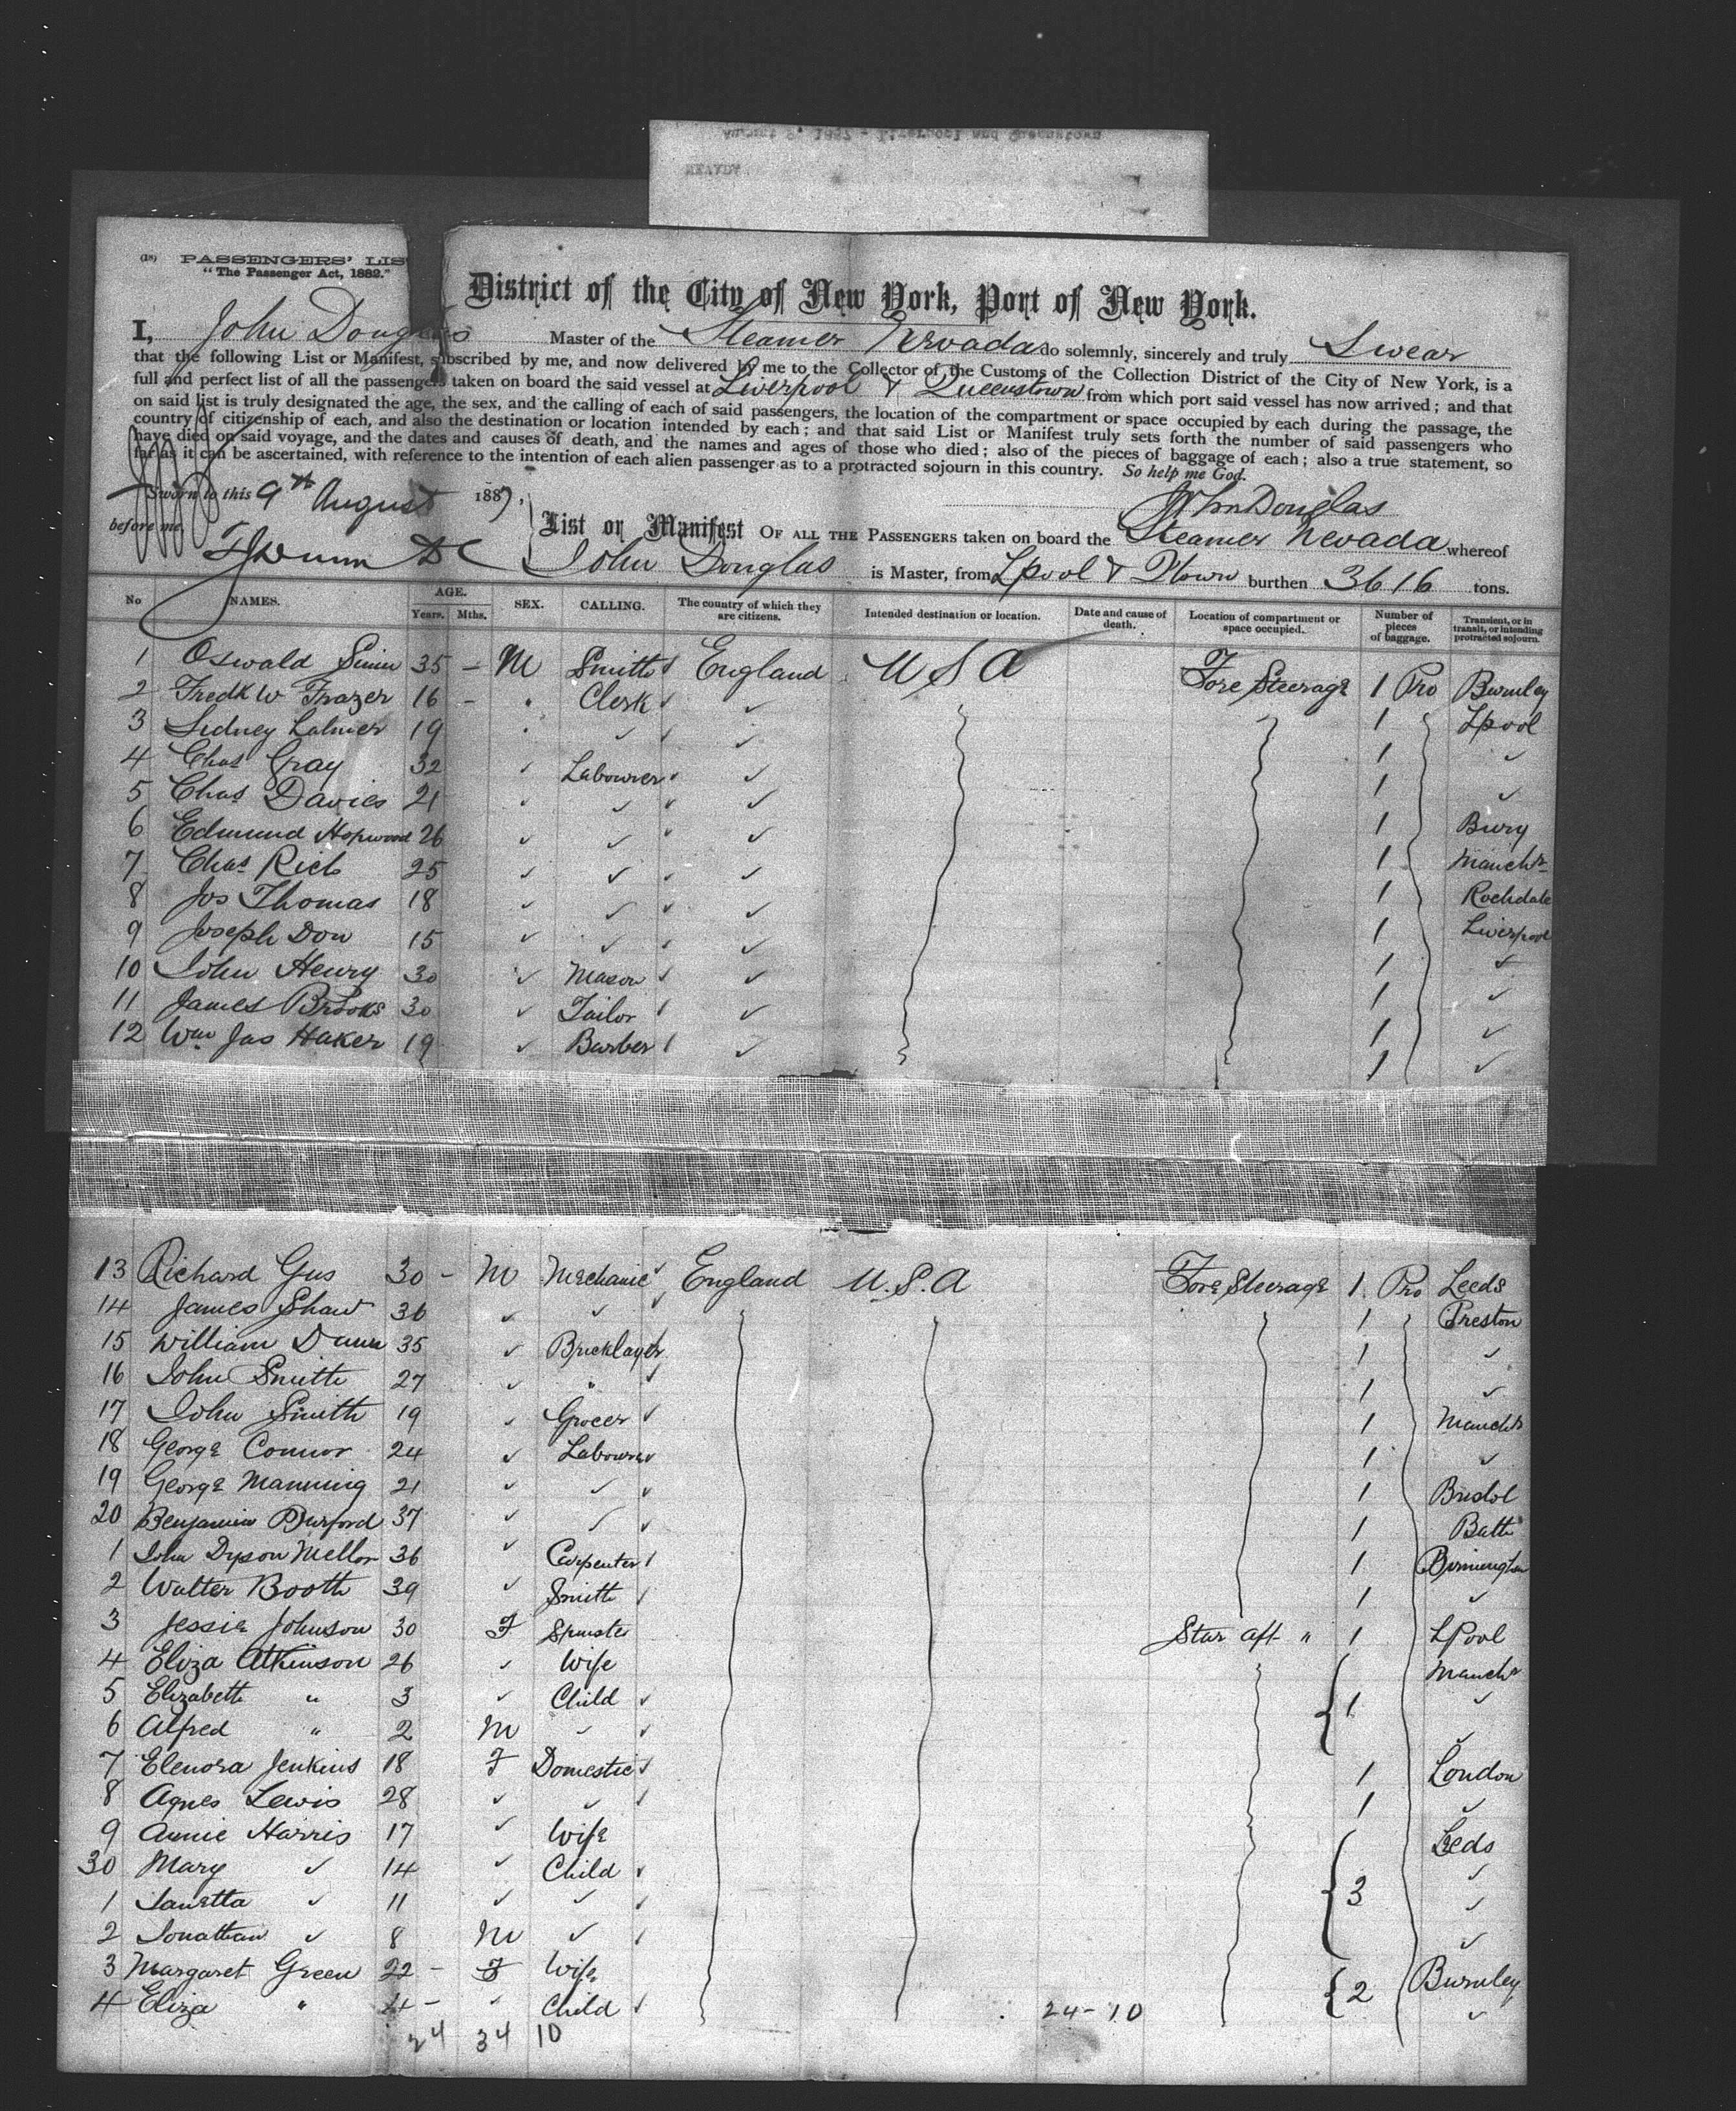 (18) PASSENGERS' LIS
"The Passenger Act, 1882."
District of the City of New York, Port of New York.
I, John Douglas Master of the Steamer Nevada do solemnly, sincerely and truly Swear
that the following List or Manifest, subscribed by me, and now delivered by me to the Collector of the Customs of the Collection District of the City of New York, is a
full and perfect list of all the passengers taken on board the said vessel at Liverpool & Queenstown from which port said vessel has now arrived; and that
on said list is truly designated the age, the sex, and the calling of each of said passengers, the location of the compartment or space occupied by each during the passage, the
country of citizenship of each, and also the destination or location intended by each; and that said List or Manifest truly sets forth the number of said passengers who
have died on said voyage, and the dates and causes of death, and the names and ages of those who died; also of the pieces of baggage of each; also a true statement, so
far as it can be ascertained, with reference to the intention of each alien passenger as to a protracted sojourn in this country. So help me God.
Sworn to this 9th August 1887,
John Douglas
before me
List or Manifest OF ALL THE PASSENGERS taken on board the Steamer Nevada whereof
John Douglas is Master, from Lpool & Qtown burthen 3616 tons.
No NAMES. AGE. Years. Mths. SEX. CALLING. The country of which they are citizens. Intended destination or location. Date and cause of death. Location of compartment or space occupied. Number of pieces of baggage. Transient, or in transit, or intending protracted sojourn.
1 Oswald 35 - M Smith England U S A Fore Steerage 1 Pro Burnley
2 Fredk W Frazer 16 - " Clerk ✓ 1 Lpool
3 Sidney 19 " ✓ ✓ 1 ✓
4 Chas Gray 32 ✓ Labourer ✓ 1 ✓
5 Chas Davies 21 ✓ ✓ ✓ 1 Bury
6 Edmund Hopwood 26 ✓ ✓ ✓ 1 Manchr
7 Chas Rich 25 ✓ ✓ ✓ 1 Rochdale
8 Jos Thomas 18 ✓ ✓ ✓ 1 Liverpool
9 Joseph Dow 15 ✓ ✓ ✓ 1 ✓
10 John Henry 30 ✓ Mason ✓ 1 ✓
11 James Brooks 30 ✓ Tailor ✓ 1 ✓
12 Wm Jas Haker 19 ✓ Barber ✓ 1 ✓
13 Richard Gus 30 - M Mechanic England U.S.A Fore Steerage 1 Pro Leeds
14 James Shaw 36 ✓ ✓ 1 Preston
15 William Dunn 35 ✓ Bricklayer 1 ✓
16 John Smith 27 ✓ " 1 ✓
17 John Smith 19 ✓ Grocer 1 Manchr
18 George Connor 24 ✓ Labourer 1 ✓
19 George Manning 21 ✓ ✓ 1 Bristol
20 Benjamin Burford 37 ✓ ✓ 1 Bath
1 John Dyson Mellor 36 ✓ Carpenter 1 Birmingham
2 Walter Booth 39 ✓ Smith 1 ✓
3 Jessie Johnson 30 F Spinster Star aft " 1 LPool
4 Eliza Atkinson 26 ✓ Wife Manchr
5 Elizabeth " 3 ✓ Child 1 ✓
6 Alfred " 2 M ✓ ✓
7 Elenora Jenkins 18 F Domestic 1 London
8 Agnes Lewis 28 ✓ ✓ 1 ✓
9 Annie Harris 17 ✓ Wife Leeds
30 Mary ✓ 14 ✓ Child ✓
1 Lauretta ✓ 11 ✓ ✓ 3 ✓
2 Jonathan ✓ 8 M ✓ ✓
3 Margaret Green 22 - F Wife Burnley
4 Eliza " 4 - ✓ Child 24-10 2 ✓
24 34 10